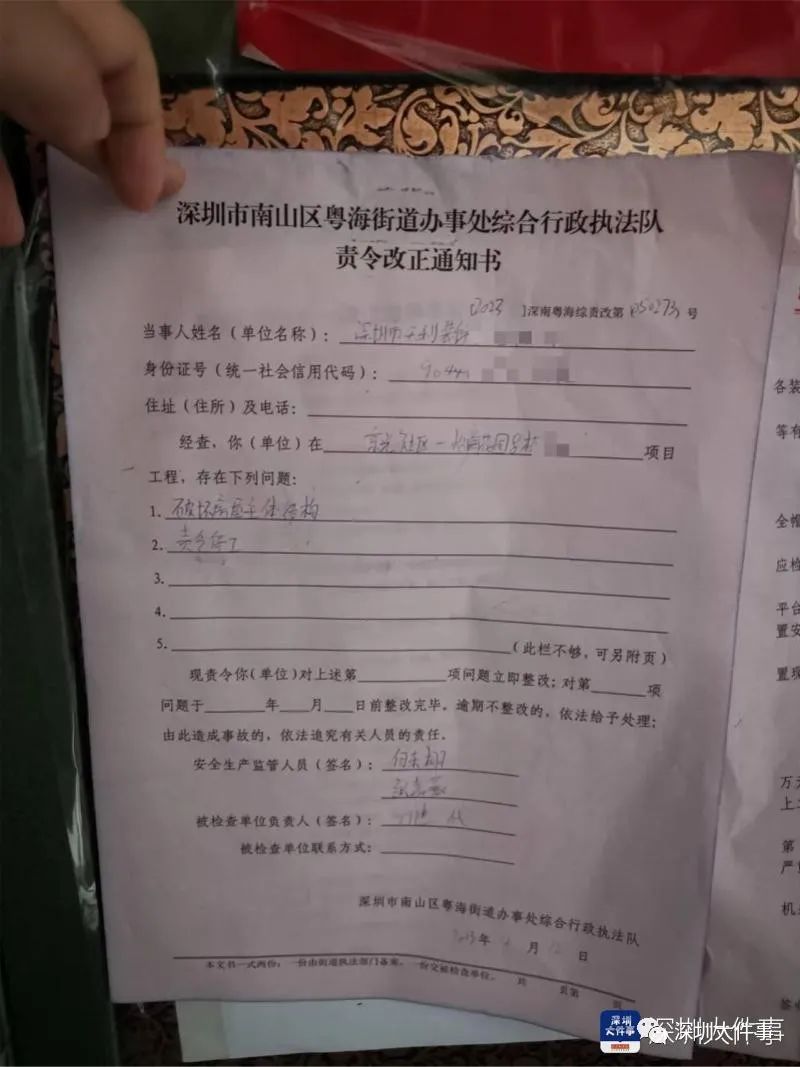 深圳市南山区粤海街道办事处综合行政执法队
责令改正通知书
[2023]深南粤海综责改第050273号
当事人姓名(单位名称):深圳市天利
身份证号(统一社会信用代码):9044
住址(住所)及电话:
经查,你(单位)在 社区一 项目
工程,存在下列问题:
1.破坏房屋主体结构
2.责令停工
3.
4.
5. (此栏不够,可另附页)
现责令你(单位)对上述第 项问题立即整改;对第 项
问题于 年 月 日前整改完毕。逾期不整改的,依法给予处理;
由此造成事故的,依法追究有关人员的责任。
安全生产监管人员(签名):
被检查单位负责人(签名):
被检查单位联系方式:
深圳市南山区粤海街道办事处综合行政执法队
2023年 月12日
本文书一式两份,一份由街道执法部门备案,一份交被检查单位。 共 页第 页
各装
等有
全帽
应检
平台
置安
置现
万元
上
第
严
机
签收
深圳大件事
深圳大件事